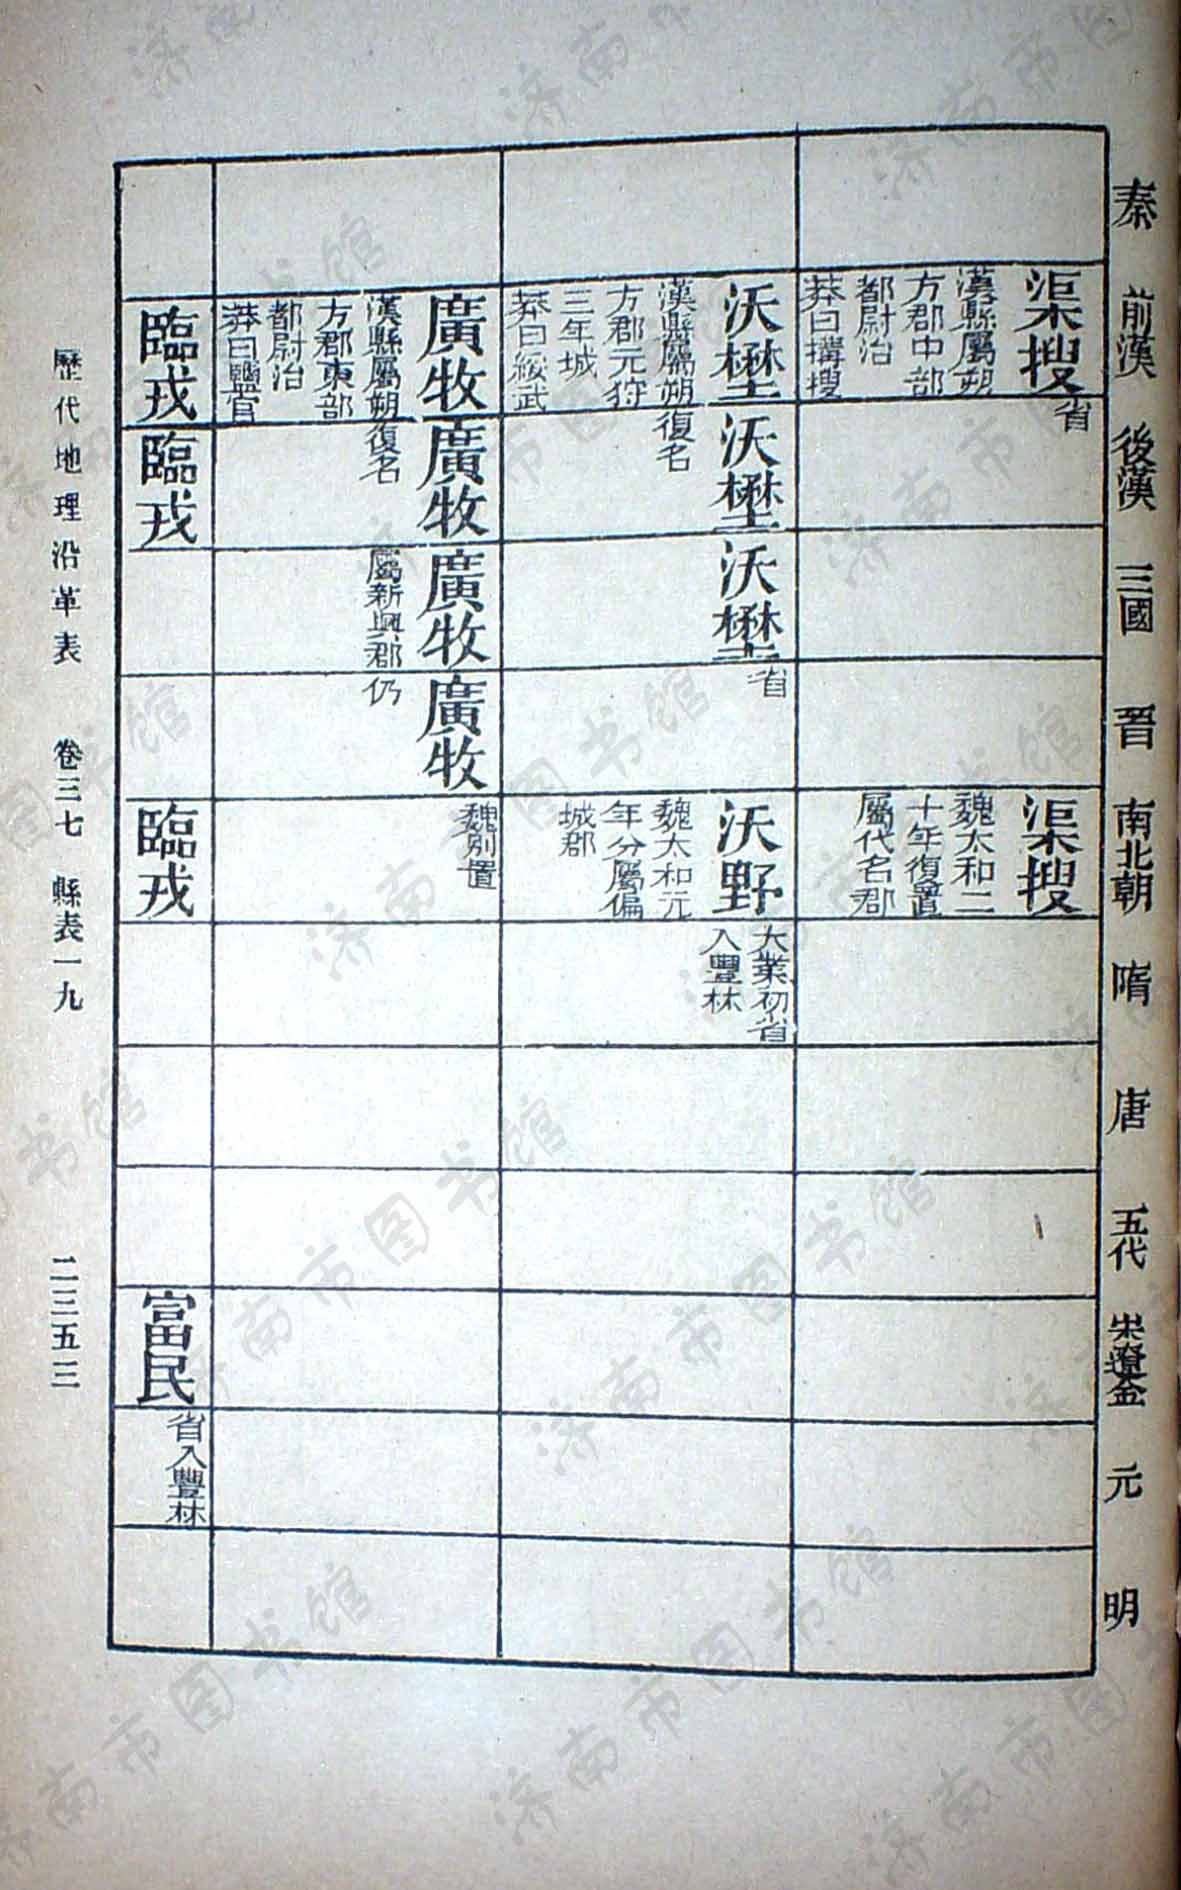 秦
前漢
後漢
三國
晉
南北朝
隋
唐
五代
宋遼金
元
明
渠搜
漢縣屬朔
方郡中部
都尉治
莽曰搆搜
省
渠搜
魏太和二
十年復置
屬代名郡
沃壄
漢縣屬朔
方郡元狩
三年城
莽曰綏武
沃壄
復名
沃壄
省
沃野
魏太和元
年分屬偏
城郡
大業初省
入豐林
廣牧
漢縣屬朔
方郡東部
都尉治
莽曰鹽官
廣牧
復名
廣牧
屬新興郡
廣牧
仍
魏別置
臨戎
臨戎
臨戎
富民
省入豐林
歷代地理沿革表 卷三七 縣表一九 二三五三
济南市图书馆